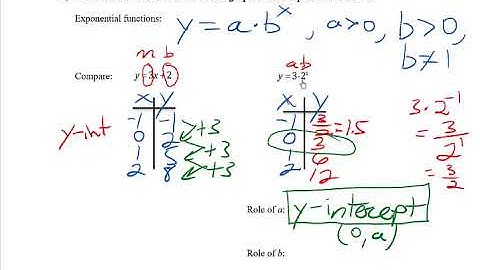 Exponential functions: y = a·b^x , a>0, b>0,
b≠1
m b a b
Compare: y = 3x + 2 y = 3·2^x
x y x y
-1 -1 -1 3/2 = 1.5
y-int 0 2 0 3
1 5 1 6
2 8 2 12
+3
+3
+3
3·2^-1
= 3/2^1
= 3/2
Role of a: y-intercept
(0, a)
Role of b: